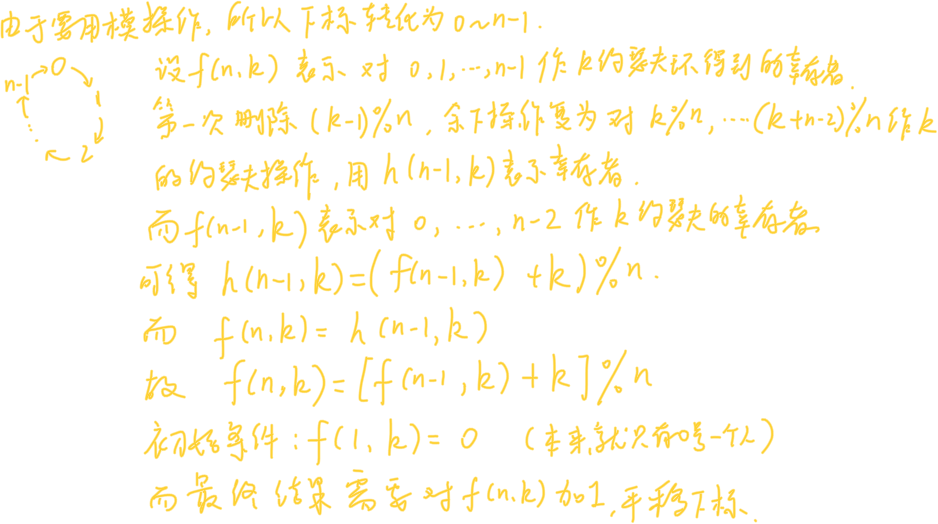 由于要用模操作,所以下标转化为0~n-1.
n-1 0 1 2
设f(n,k)表示对0,1,…,n-1作k约瑟夫环得到的幸存者.
第一次删除(k-1)%n,余下操作变为对k%n,…(k+n-2)%n作k
的约瑟夫操作,用h(n-1,k)表示幸存者.
而f(n-1,k)表示对0,…,n-2作k约瑟夫的幸存者
可得 h(n-1,k)=(f(n-1,k)+k)%n.
而 f(n,k)=h(n-1,k)
故 f(n,k)=[f(n-1,k)+k]%n
初始条件:f(1,k)=0 (本来就只有0号一个人)
而最终结果需要对f(n,k)加1,平移下标.